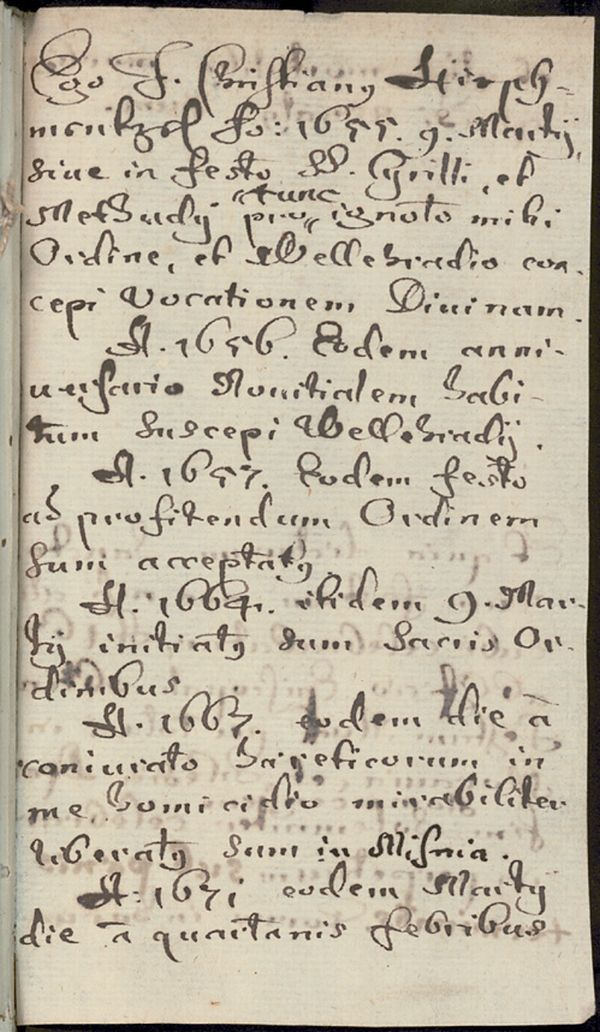 Ego F. Christiang Hirsch-
mentzel fo: 1655. 9. Martij
siue in festo SS. Cyrilli, et
Methudij tunc pro ignoto mihi
Ordine, et Wellehradio con-
cepi Vocationem Diuinam.
A. 1656. Eodem anni-
uersario Nouitialem habi-
tum suscepi Wellehradij.
A. 1657. Eodem festo
ad profitendum Ordinem
sum acceptatg.
A. 1664. itidem 9. Mar-
tij initiatg sum Sacris Or-
dinibus
A. 1667. eodem die à
coniurato haereticorum in
me homicidio mirabiliter
liberatg sum in Misnia.
A. 1671 eodem Martij
die à quartanis febribus